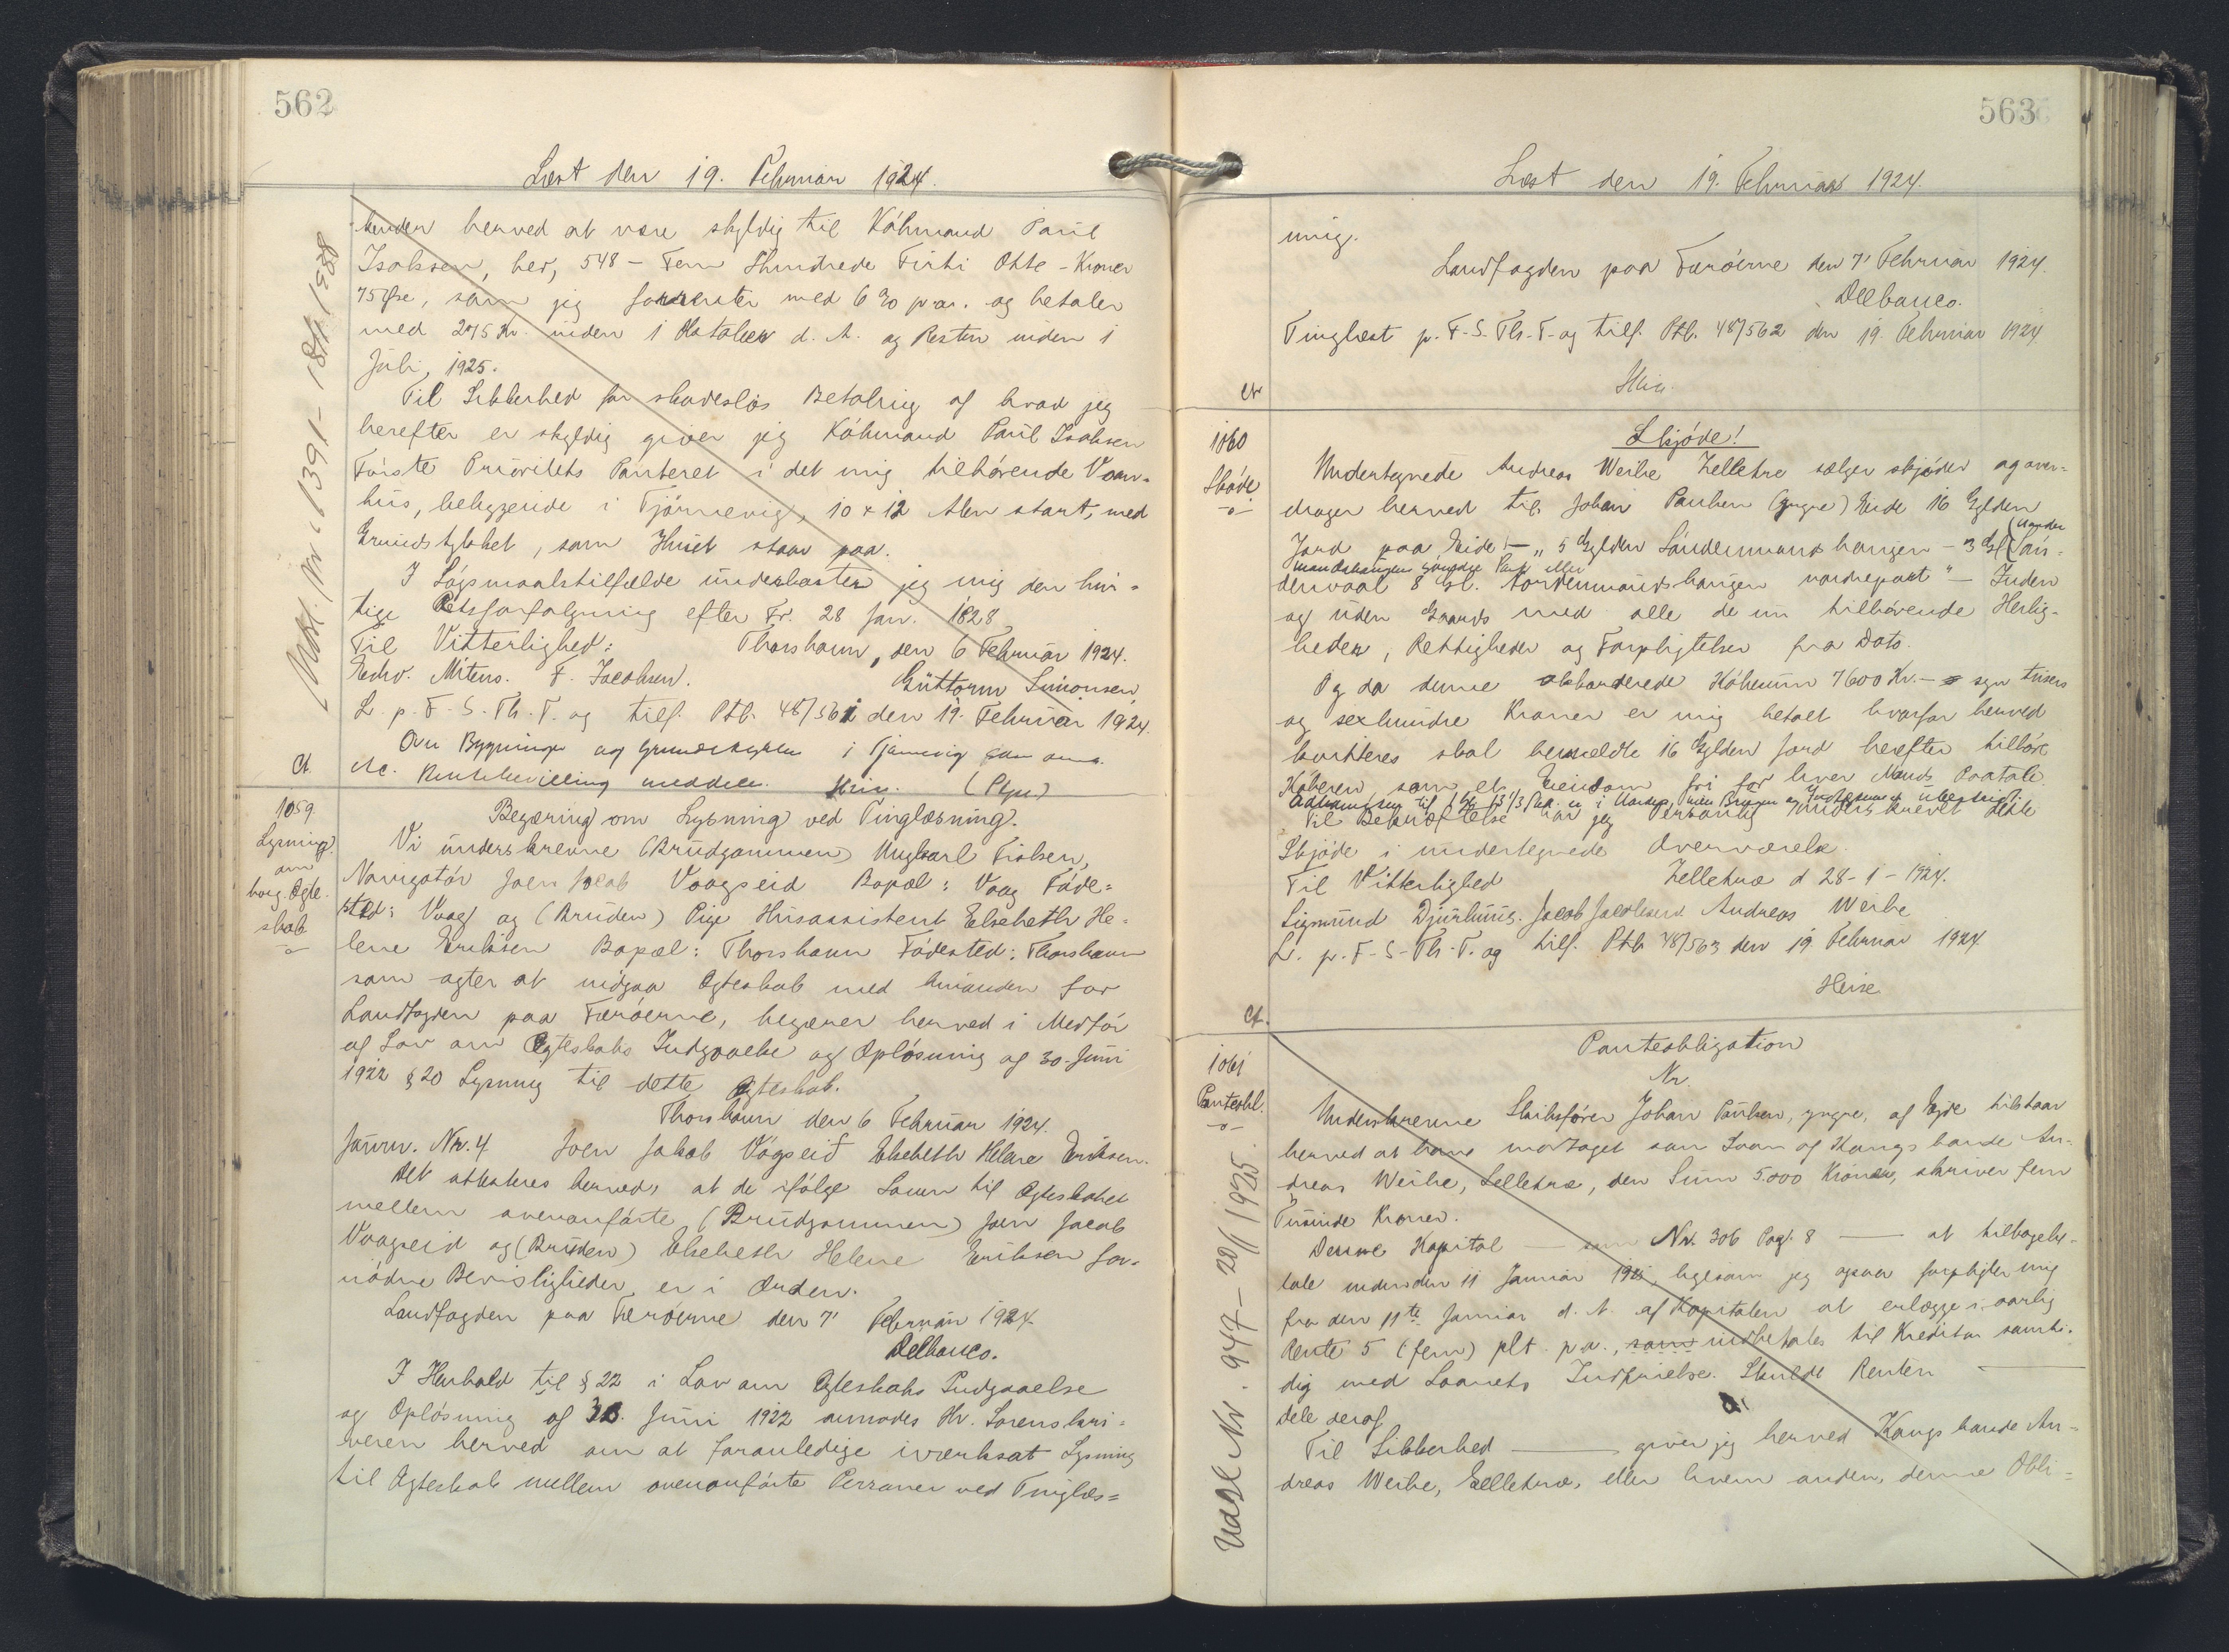 562
Læst den 19. Februar 1924.
kender herved at være skyldig til Kóbmand Paul
Isaksen, her, 548 – Fem Hundrede Firti Otte – Kroner
75 Øre, som jeg forrenter med 6 % p. a. og betaler
med 275 Kr. inden 1 Oktober d. A. og Resten inden 1
Juli, 1925.
Til Sikkerhed for skadeslös Betaling af hvad jeg
herefter er skyldig giver jeg Kóbmand Paul Isaksen
Fórste Prioritets Panteret i det mig tilhórende Vaan-
hus, beliggende i Tjörnevig, 10 x 12 Alen start, med
Grundstykket, som Huset staar paa.
I Sógsmaalstilfælde underkaster jeg mig den hur-
tige Retsforfølgning efter Fr. 28 Jan. 1828
Til Vitterlighed: Thorshavn, den 6 Februar 1924.
Edw. Mitens. F. Jacobsen. Guttorm Simonsen
L. p. F. S. Th. T. og tilf. Ptb. 48/561 den 19. Februar 1924.
Om Bygninger og Grundstykke i Tjørnevig som oms.
etc. Rentebevilling meddeles. Heise. (Pleje)
Ct.
Udsl. Nr. 1391 - 18/11 1988
1059
Lysning
om
borg. Ægte-
skab
Begæring om Lysning ved Tinglæsning.
Vi underskrevne (Brudgommen) Ungkarl Fiolsen,
Navigatör Joen Jacob Vaagseid Bopæl: Vaag Føde-
sted: Vaag og (Bruden) Pige Husassistent Elsebeth He-
lene Eriksen Bopæl: Thorshavn Fódested: Thorshavn
som agter at indgaa Ægteskab med hinanden for
Landfogden paa Færóerne, begærer herved i Medfór
af Lov om Ægteskabs Indgaaelse og Oplósning af 30. Juni
1922 § 20 Lysning til dette Ægteskab.
Thorshavn den 6 Februar 1924.
Journ. Nr. 4 Joen Jakob Vágseið Elsebeth Helene Eriksen.
Det attesteres herved, at de ifølge Loven til Ægteskabet
mellem ovenanfórte (Brudgommen) Joen Jacob
Vaagseid og (Bruden) Elsebeth Helene Eriksen for-
nódne Bevisligheder er i Orden.
Landfogden paa Færóerne den 7' Februar 1924.
Delbanco.
I Henhold til § 22 i Lov om Ægteskabs Indgaaelse
og Oplósning af 30. Juni 1922 anmodes Hr. Sorenskri-
veren herved om at foranledige iværksat Lysning
til Ægteskab mellem ovenanfórte Personer ved Tinglæs=
563
Læst den 19. Februar 1924.
ning.
Landfogden paa Færóerne den 7' Februar 1924.
Delbanco.
Tinglæst p. F. S. Th. T. og tilf. Ptb. 48/562 den 19. Februar 1924
Heise.
Ct
1060
Skóde
Skjóde!
Undertegnede Andreas Weihe Zelletræ sælger skjóder og over-
drager herved til Johan Paulsen (yngre) Eide 16 Gylden
Jord paa Eide: – „ 5 Gylden Sóndenmands haugen – 3 Gl. Sön-
denvaal 8 Gl. Nordenmandshaugen nordrepart " – Inden
og uden Gaards med alle de en tilhörende Herlig-
heder, Rettigheder og Forpligtelser fra Dato.
Og da denne akkorderede Kóbesum 7600 Kr. – syv tusen
og sexhundre Kroner er mig betalt hvorfor herved
kvitteres skal bemældte 16 Gylden Jord herefter tilhöre
Köberen som et Eiendom fri for hver Mands Paatale.
Til Bekræftelse har jeg Personlig underskrevet dette
Skjóde i undertegnede Overværelse
Til Vitterlighed Zelletræ d 28 - 1 - 1924.
Sigmund Djurhuus. Jacob Jacobsen. Andreas Weihe
L. p. F. S. Th. T. og tilf. Ptb 48/563 den 19. Februar 1924
Heise
Ct.
1061
Panteobl.
Udsl. Nr. 947 - 20/1 1925
Panteobligation
Nr.
Underskrevne Skibsfører Johan Paulsen, yngre, af Ejde tilstaar
herved at have modtaget som Laan af Kongsbonde An-
dreas Weihe, Selletræ, den Sum 5.000 Kroner, skriver fem
Tusinde Kroner.
Denne Kapital — som Nr. 306 Pag. 8 — at tilbagebe-
tale inden den 11 Januar 1925, ligesom jeg ogsaa forpligter mig
fra den 11te Januar d. A. af Kapitalen at erlægge i aarlig
Rente 5 (fem) pCt. p. a., som indbetales til Kreditor samti-
dig med Laanets Indfrielse. Skulde Renten —
dele deraf
Til Sikkerhed — giver jeg herved Kongsbonde An-
dreas Weihe, Selletræ, eller hvem anden, denne Obli=